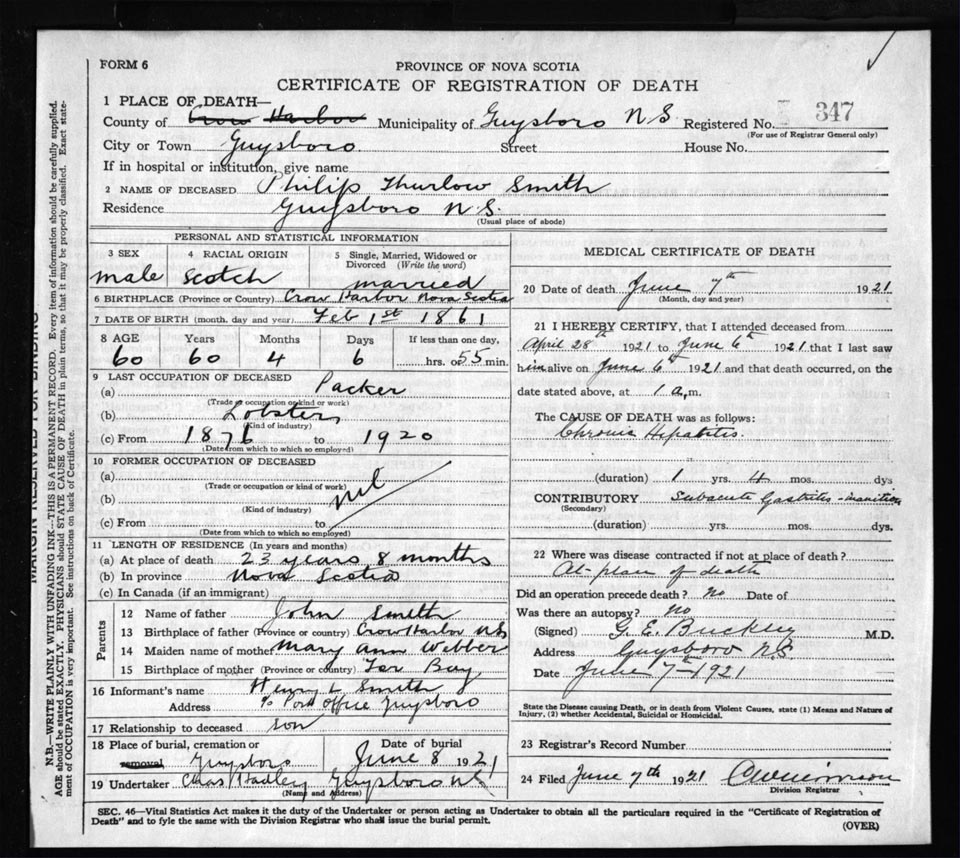 FORM 6
PROVINCE OF NOVA SCOTIA
CERTIFICATE OF REGISTRATION OF DEATH
1 PLACE OF DEATH—
County of Crow Harbor Municipality of Guysboro N S Registered No. 347
(For use of Registrar General only)
City or Town Guysboro Street House No.
If in hospital or institution, give name
2 NAME OF DECEASED Philip Thurlow Smith
Residence Guysboro N.S.
(Usual place of abode)
PERSONAL AND STATISTICAL INFORMATION
3 SEX 4 RACIAL ORIGIN 5 Single, Married, Widowed or Divorced (Write the word)
male Scotch married
6 BIRTHPLACE (Province or Country) Crow Harbor Nova Scotia
7 DATE OF BIRTH (month, day and year) Feb 1st 1861
8 AGE Years Months Days If less than one day,
60 60 4 6 hrs. or 55 min.
9 LAST OCCUPATION OF DECEASED
(a) Packer
(Trade or occupation or kind of work)
(b) Lobster
(Kind of industry)
(c) From 1876 to 1920
(Date from which to which so employed)
10 FORMER OCCUPATION OF DECEASED
(a)
(Trade or occupation or kind of work)
(b) nil
(Kind of industry)
(c) From to
(Date from which to which so employed)
11 LENGTH OF RESIDENCE (In years and months)
(a) At place of death 23 years 8 months
(b) In province Nova Scotia
(c) In Canada (if an immigrant)
Parents
12 Name of father John Smith
13 Birthplace of father (Province or country) Crow Harbor N S
14 Maiden name of mother Mary Ann Webber
15 Birthplace of mother (Province or country) Tor Bay
16 Informant's name Henry L Smith
Address c/o Post Office Guysboro
17 Relationship to deceased son
18 Place of burial, cremation or removal Guysboro Date of burial June 8 1921
19 Undertaker Chas Hadley Guysboro N S
(Name and Address)
MEDICAL CERTIFICATE OF DEATH
20 Date of death June 7th 1921
(Month, day and year)
21 I HEREBY CERTIFY, that I attended deceased from
April 28th 1921 to June 6th 1921 that I last saw
him alive on June 6th 1921 and that death occurred, on the
date stated above, at 1 a.m.
The CAUSE OF DEATH was as follows:
Chronic Hepatitis.
(duration) 1 yrs. 4 mos. dys
CONTRIBUTORY Subacute Gastritis - inanition
(Secondary)
(duration) yrs. mos. dys.
22 Where was disease contracted if not at place of death?
At place of death
Did an operation precede death? No Date of
Was there an autopsy? No
(Signed) G. E. Buckley M.D.
Address Guysboro N.S
Date June 7th 1921
State the Disease causing Death, or in death from Violent Causes, state (1) Means and Nature of
Injury, (2) whether Accidental, Suicidal or Homicidal.
23 Registrar's Record Number
24 Filed June 7th 1921
Division Registrar
SEC. 46—Vital Statistics Act makes it the duty of the Undertaker or person acting as Undertaker to obtain all the particulars required in the "Certificate of Registration of
Death" and to fyle the same with the Division Registrar who shall issue the burial permit.
(OVER)
MARGIN RESERVED FOR BINDING
N.B.—WRITE PLAINLY WITH UNFADING INK—THIS IS A PERMANENT RECORD. Every item of information should be carefully supplied.
AGE should be stated EXACTLY. PHYSICIANS should STATE CAUSE OF DEATH in plain terms, so that it may be properly classified. Exact state-
ment of OCCUPATION is very important. See instructions on back of Certificate.